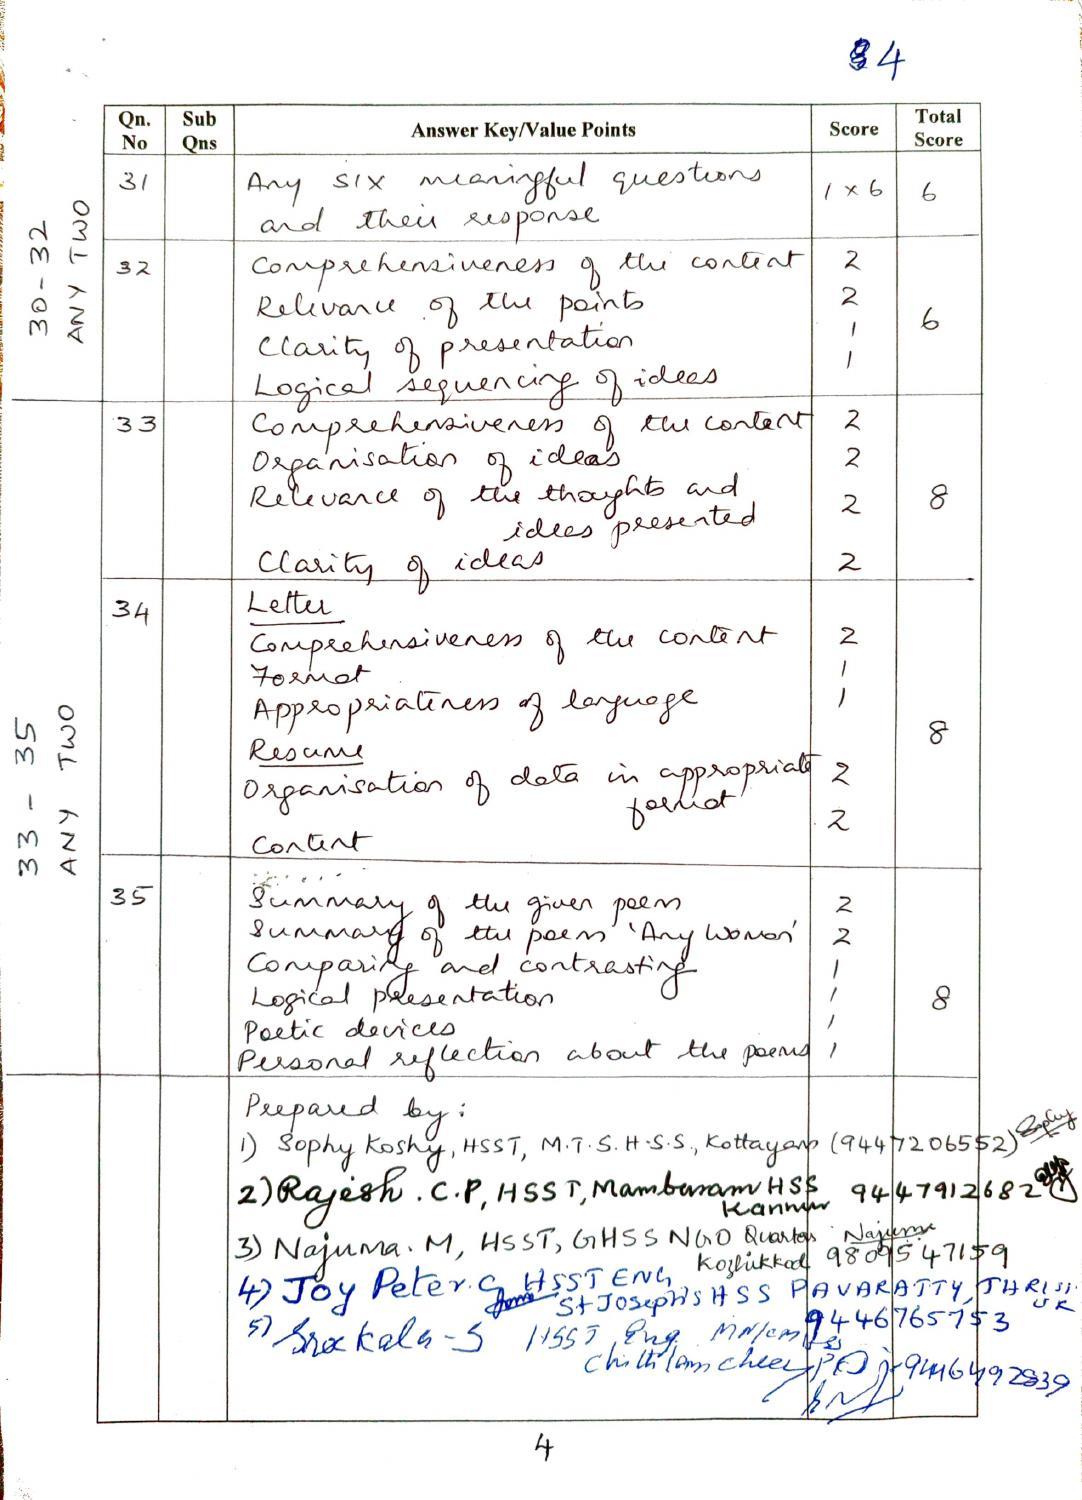 84
Qn. No Sub Qns Answer Key/Value Points Score Total Score
30-32 ANY TWO
31 Any six meaningful questions 1 x 6 6
and their response
32 Comprehensiveness of the content 2
Relevance of the points 2
6
Clarity of presentation 1
Logical sequencing of ideas 1
33 - 35 ANY TWO
33 Comprehensiveness of the content 2
Organisation of ideas 2
Relevance of the thoughts and 2 8
ideas presented
Clarity of ideas 2
34 Letter
Comprehensiveness of the content 2
Format 1
Appropriateness of language 1
8
Resume
Organisation of data in appropriate 2
format
Content 2
35 Summary of the given poem 2
Summary of the poem 'Any Woman' 2
Comparing and contrasting 1
Logical presentation 1 8
Poetic devices 1
Personal reflection about the poems 1
Prepared by:
1) Sophy Koshy, HSST, M.T.S.H.S.S., Kottayam (9447206552) Sophy
2) Rajesh. C.P, HSST, Mambaram HSS 9447912682
Kannur
3) Najuma. M, HSST, GHSS NGO Quarters Najuma
Kozhikkod 9809547159
4) Joy Peter. C HSST ENG
St Joseph's HSS PAVARATTY, THRISSUR
9446765753
5) Sreekala-S HSST Eng.
9446492839
4